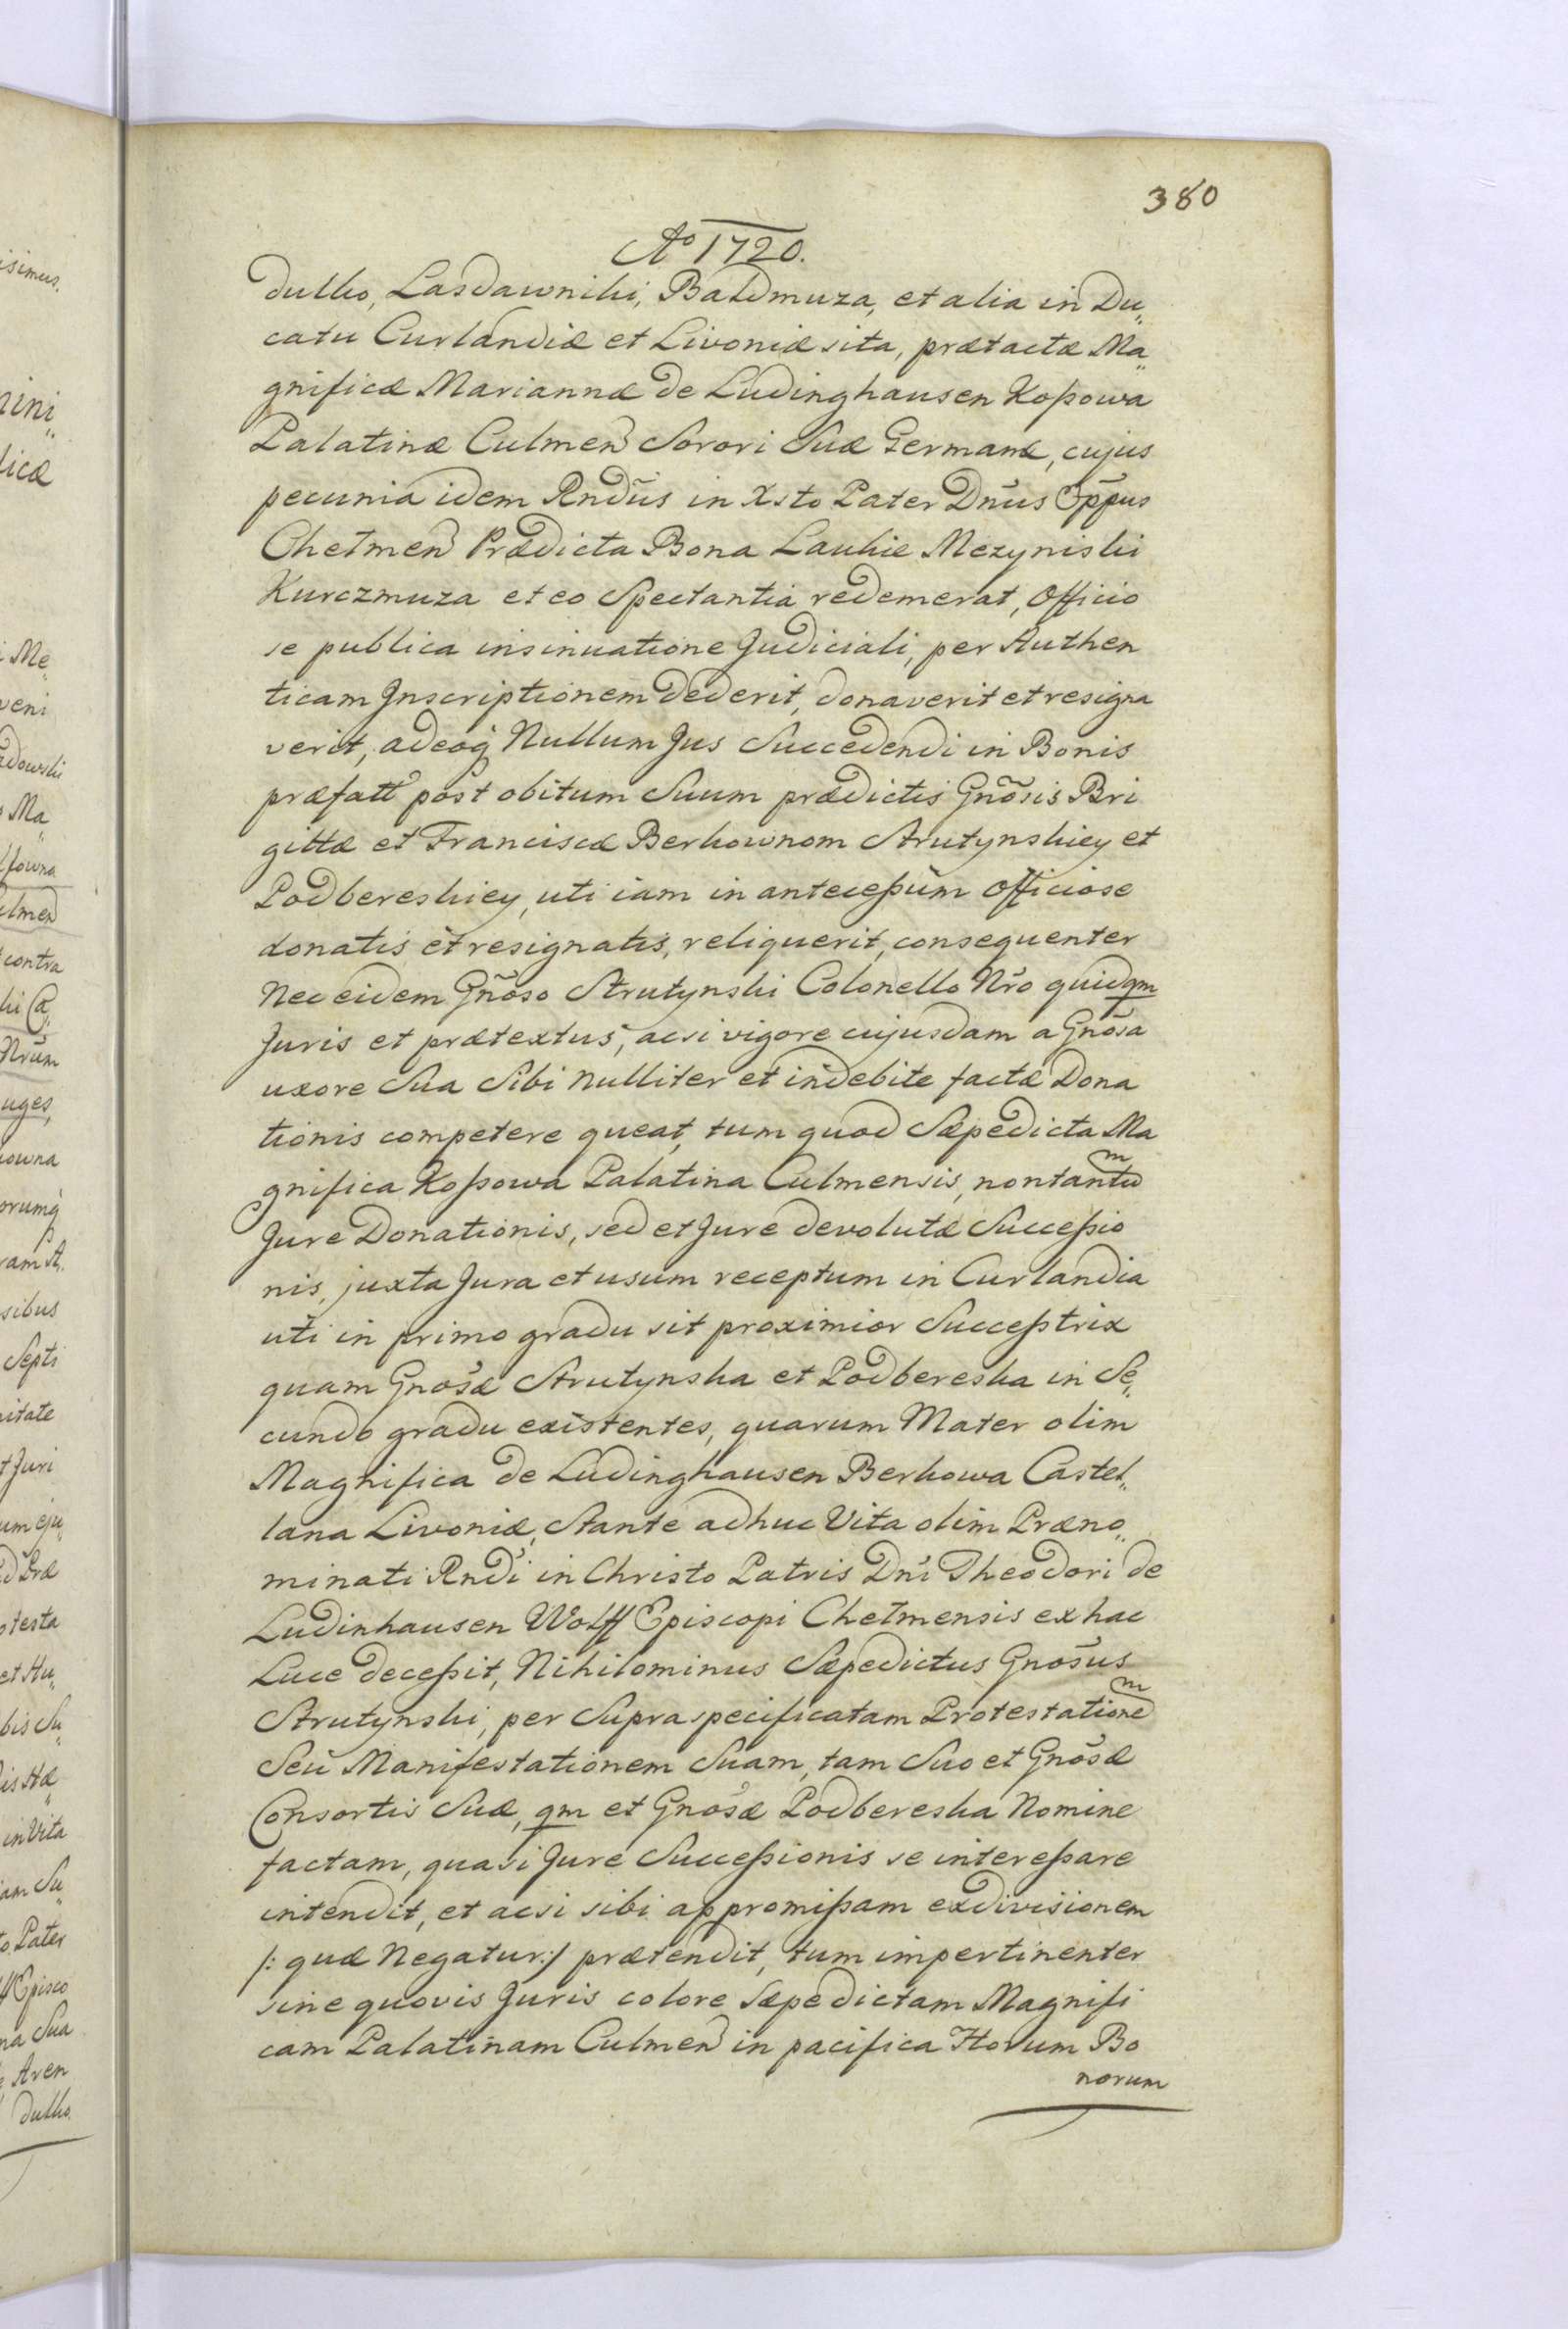 380
Aº 1720.
dulko, Lasdawniki, Baldmuza, et alia in Du„
catu Curlandiæ et Livoniæ sita, prætactæ Ma„
gnificæ Mariannæ de Ludinghausen Koßowa
Palatinæ Culmen Sorori Suæ Germanæ, cujus
pecunia idem Rnd̃us in Xsto Pater Dñus Eppus
Chełmen Prædicta Bona Laukie Mezyniski
Kurczmuza et eo Spectantia redemerat, Officio
se publica insinuatione Judiciali, per Authen
ticam Inscriptionem dederit, donaverit et resigna
verit, adeoq̃ Nullum Jus Succedendi in Bonis
præfatt post obitum Suum prædictis Gnõsis Bri
gittæ et Franciscæ Berkownom Strutynskiey et
Podbereskiey, uti iam in anteceßum officiose
donatis et resignatis, reliquerit, consequenter
Nec eidem Gñoso Strutynski Colonello Nr̃o quidqm
Juris et prætextus, acsi vigore cujusdam a Gnõsa
uxore Sua Sibi nulliter et indebite factæ Dona
tionis competere queat, tum quod Sæpedicta Ma
gnifica Koßowa Palatina Culmensis, non tantum
Jure Donationis, sed et Jure devolutæ Succeßio
nis, juxta Jura et usum receptum in Curlandia
uti in primo gradu sit proximior Succeßtrix
quam Gnosæ Strutynska et Podbereska in Se„
cundo gradu existentes, quarum Mater olim
Magnifica de Ludinghausen Berkowa Castel„
lana Livoniæ, Stante adhuc Vita olim Præno„
minati Rndi in Christo Patris Dñi Theodori de
Ludinhausen Wolff Episcopi Chełmensis ex hac
Luce deceßit, Nihilominus Sæpedictus Gnosus
Strutynski, per Supra specificatam Protestationem
Seu Manifestationem Suam, tam Suo et Gnõsæ
Consortis Suæ, qm et Gnosæ Podbereska Nomine
factam, quasi Jure Succeßionis se intereßare
intendit, et acsi sibi appromißam exdivisionem
/: quæ Negatur:/ prætendit, tum impertinenter
sine quovis Juris colore Sæpe dictam Magnifi
cam Palatinam Culmen in pacifica Horum Bo
norum